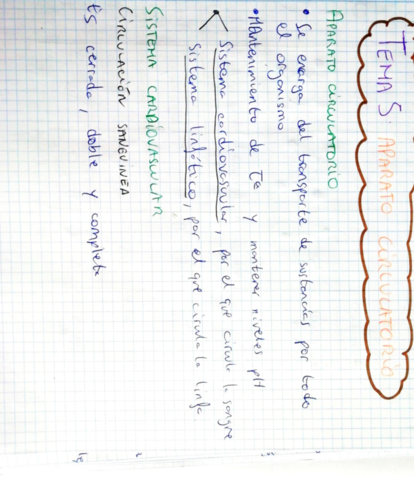 TEMA 5 APARATO CIRCULATORIO
APARATO CIRCULATORIO
• Se encarga del transporte de sustancias por todo
el organismo
• Mantenimiento de Tª y mantener niveles pH
Sistema cardiovascular, por el que circula la sangre
Sistema linfático, por el que circula la linfa
SISTEMA CARDIOVASCULAR
CIRCULACIÓN SANGUINEA
Es cerrada, doble y completa